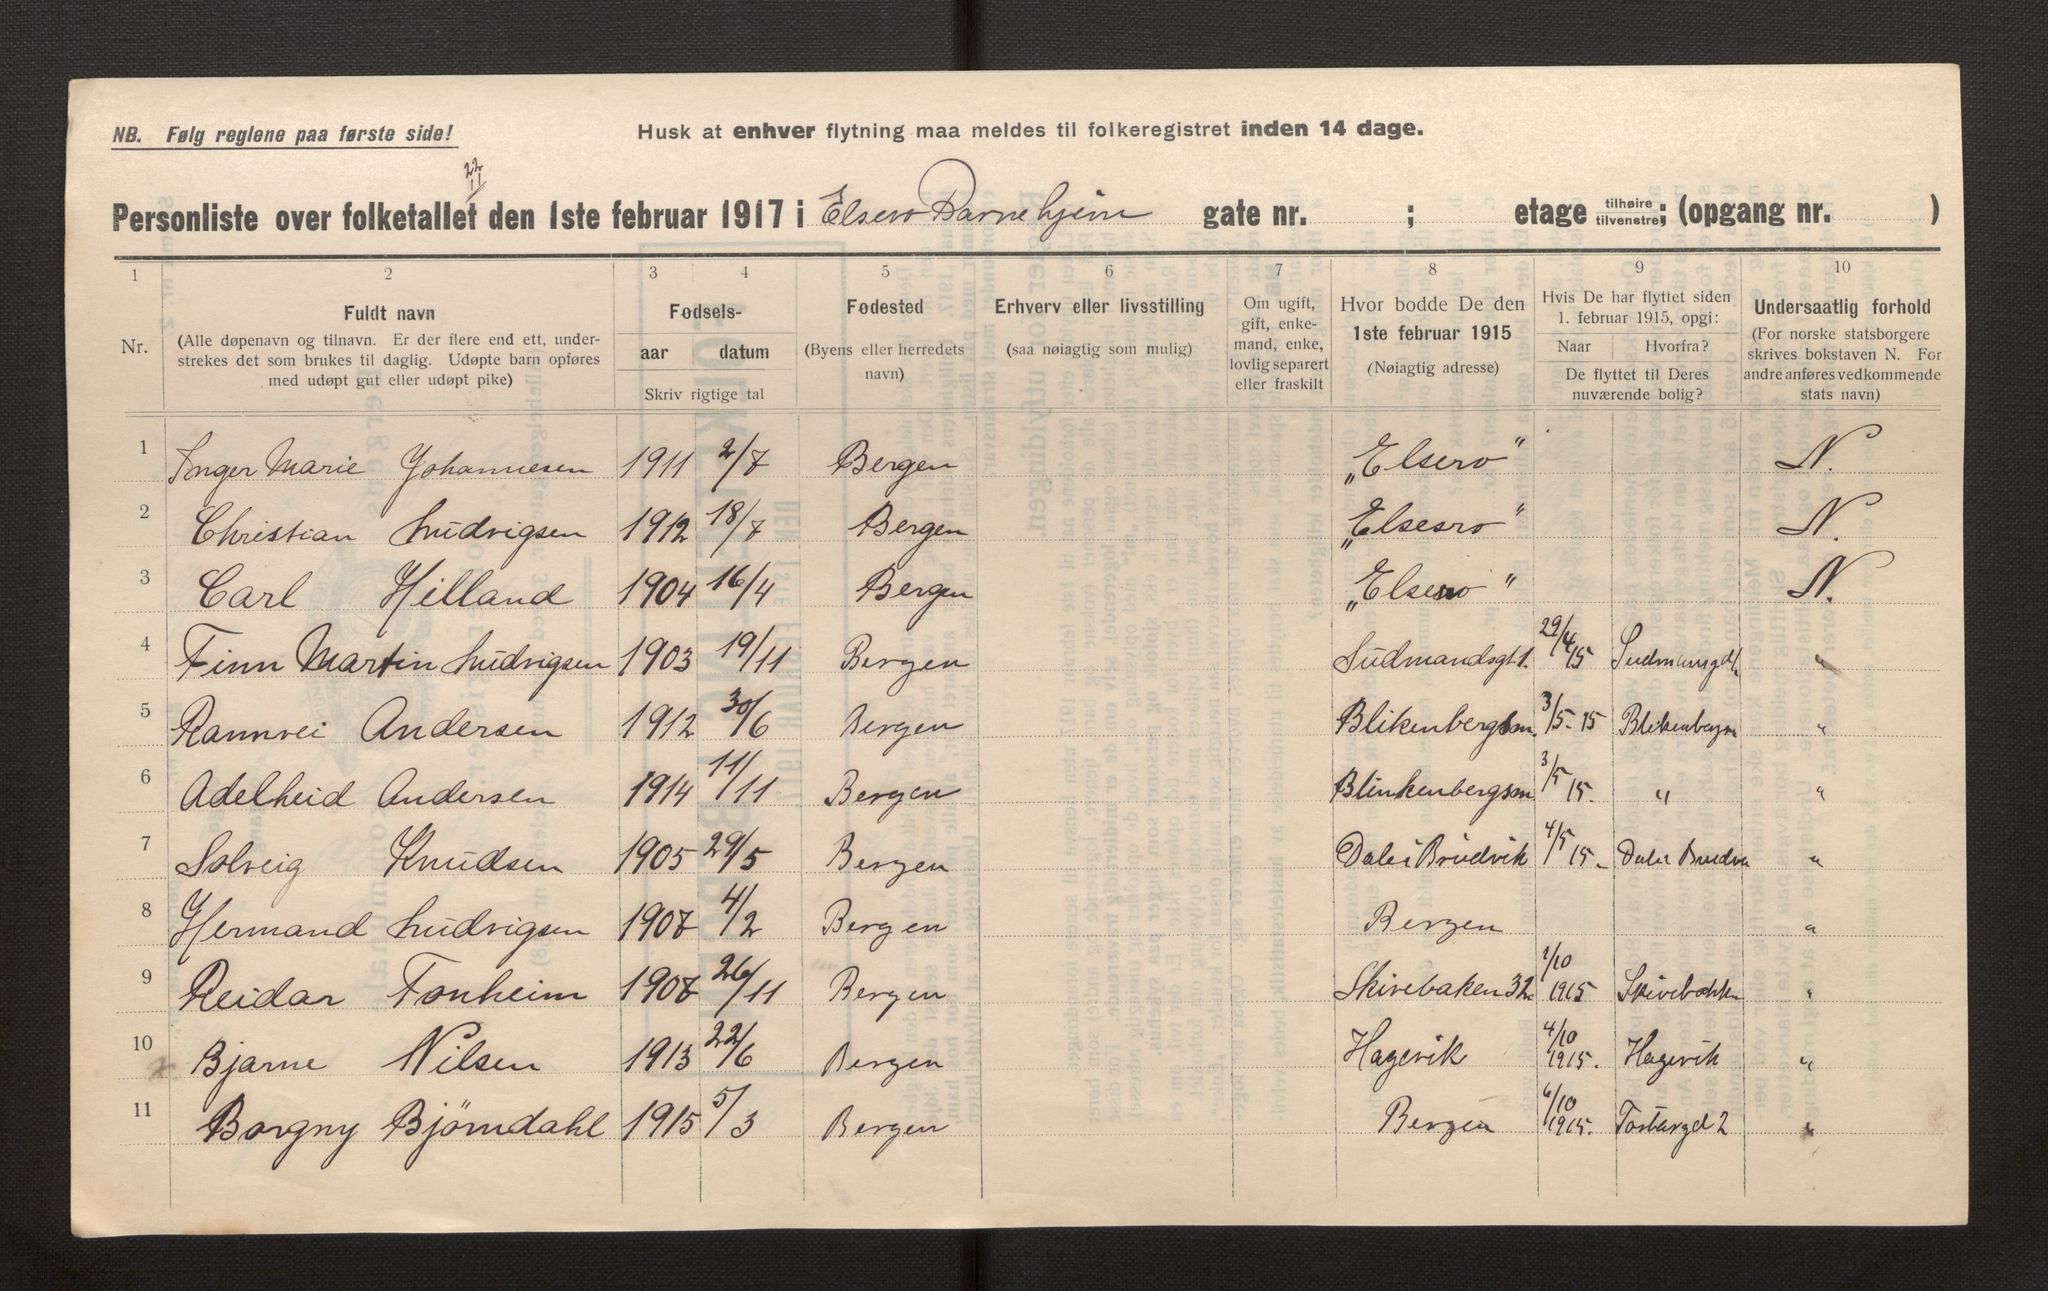 NB. Følg reglene paa første side!
Husk at enhver flytning maa meldes til folkeregistret inden 14 dage.
22/11
Personliste over folketallet den 1ste februar 1917 i Elsero Barnehjem gate nr. ; etage tilhøire tilvenstre; (opgang nr. )
1 2 3 4 5 6 7 8 9 10
Nr.
Fuldt navn
(Alle døpenavn og tilnavn. Er der flere end ett, under-
strekes det som brukes til daglig. Udøpte barn opføres
med udøpt gut eller udøpt pike)
Fødsels-
aar datum
Skriv rigtige tal
Fødested
(Byens eller herredets
navn)
Erhverv eller livsstilling
(saa nøiagtig som mulig)
Om ugift,
gift, enke-
mand, enke,
lovlig separert
eller fraskilt
Hvor bodde De den
1ste februar 1915
(Nøiagtig adresse)
Hvis De har flyttet siden
1. februar 1915, opgi:
Naar Hvorfra?
De flyttet til Deres
nuværende bolig?
Undersaatlig forhold
(For norske statsborgere
skrives bokstaven N. For
andre anføres vedkommende
stats navn)
1 Inger Marie Johannesen 1911 2/7 Bergen „Elsero" N.
2 Christian Ludvigsen 1912 18/7 Bergen „Elsesro" N.
3 Carl Hilland 1904 16/4 Bergen „Elsesro" N.
4 Finn Martin Ludvigsen 1903 19/11 Bergen Sudmandsgt 1. 29/4 15 "
5 Rannvei Andersen 1912 30/6 Bergen 3/5-15 "
6 Adelheid Andersen 1914 11/11 Bergen Blinkenbergsm 3/5 15. " "
7 Solveig Knudsen 1905 29/5 Bergen Dale i Brudvik 4/5 15. "
8 Hermand Ludvigsen 1907 4/2 Bergen Bergen "
9 Reidar Fonheim 1907 26/11 Bergen Skivebaken 32 1/10 1915 "
10 Bjarne Nilsen 1913 22/6 Bergen Hagevik 4/10 1915. Hagevik "
11 Borgny Björndahl 1915 5/3 Bergen Bergen 6/10 1915. "